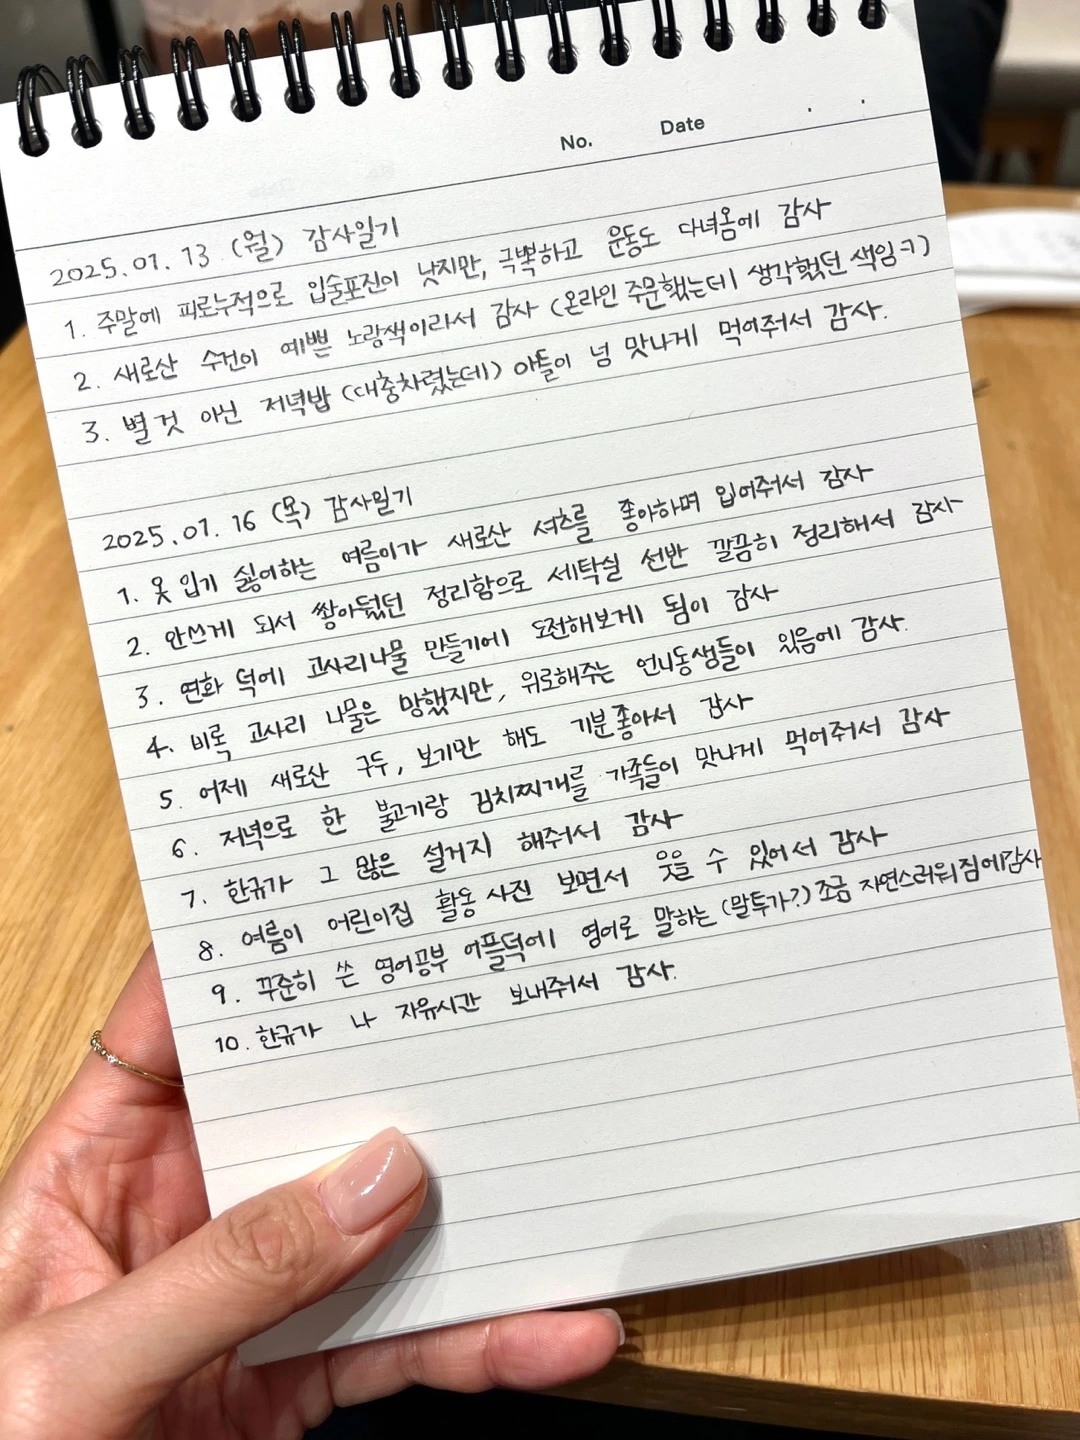 No. Date . .
2025.01.13 (월) 감사일기
1. 주말에 피로누적으로 입술포진이 났지만, 극뽁하고 운동도 다녀옴에 감사
2. 새로산 수건이 예쁜 노랑색이라서 감사 (온라인 주문했는데 생각했던 색임ㅋ)
3. 별것 아닌 저녁밥 (대충차렸는데) 아들이 넘 맛나게 먹어줘서 감사.
2025.01.16 (목) 감사일기
1. 옷 입기 싫어하는 여름이가 새로산 셔츠를 좋아하며 입어줘서 감사
2. 안쓰게 되서 쌓아뒀던 정리함으로 세탁실 선반 깔끔히 정리해서 감사
3. 연화 덕에 고사리나물 만들기에 도전해보게 됨이 감사
4. 비록 고사리 나물은 망했지만, 위로해주는 언니동생들이 있음에 감사.
5. 어제 새로산 구두, 보기만 해도 기분좋아서 감사
6. 저녁으로 한 불고기랑 김치찌개를 가족들이 맛나게 먹어줘서 감사
7. 한규가 그 많은 설거지 해줘서 감사
8. 여름이 어린이집 활동사진 보면서 웃을 수 있어서 감사
9. 꾸준히 쓴 영어공부 어플덕에 영어로 말하는 (말투가?) 조금 자연스러워짐에감사
10. 한규가 나 자유시간 보내줘서 감사.